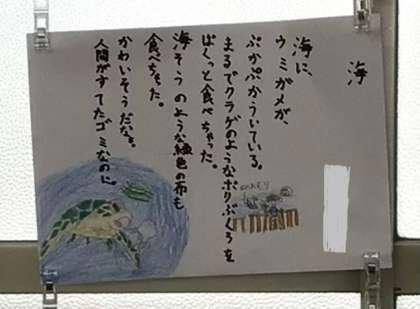 海
海に、
ウミがメが、
ぷかぷかういている。
まるでクラゲのようなポリぶくろを
ぱくっと食べちゃった。
海そうのような緑色の布も
食べちゃた。
かわいそうだなぁ。
人間がすてたゴミなのに。